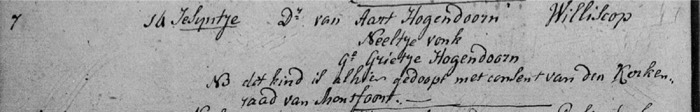 7 14 Jesyntje Dr. van Aart Hogendoorn Williscop
Neeltje vonk
Ge. Grietje Hogendoorn
NB dit kind is alhier gedoopt met consent van den Kerken-
raad van Montfoort.